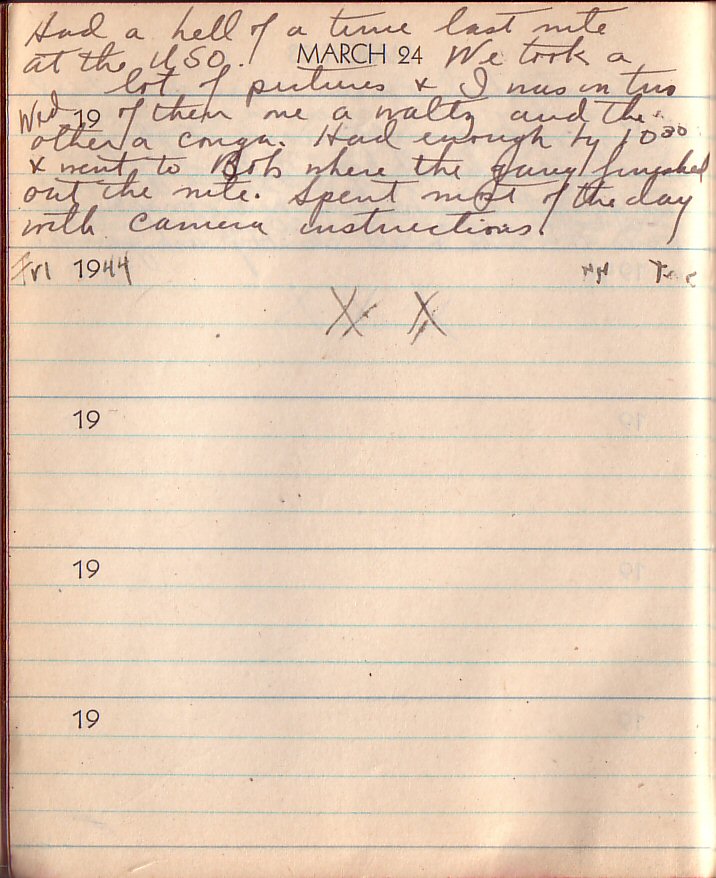 Had a hell of a time last nite
at the USO. MARCH 24 We took a
lot of pictures & I was in two
Wed 19 of them one a waltz and the
other a conga. Had enough by 10³⁰
& went to Bob's where the gang finished
out the nite. Spent most of the day
with camera instructions.
Fri 1944
XX X
19
19
19